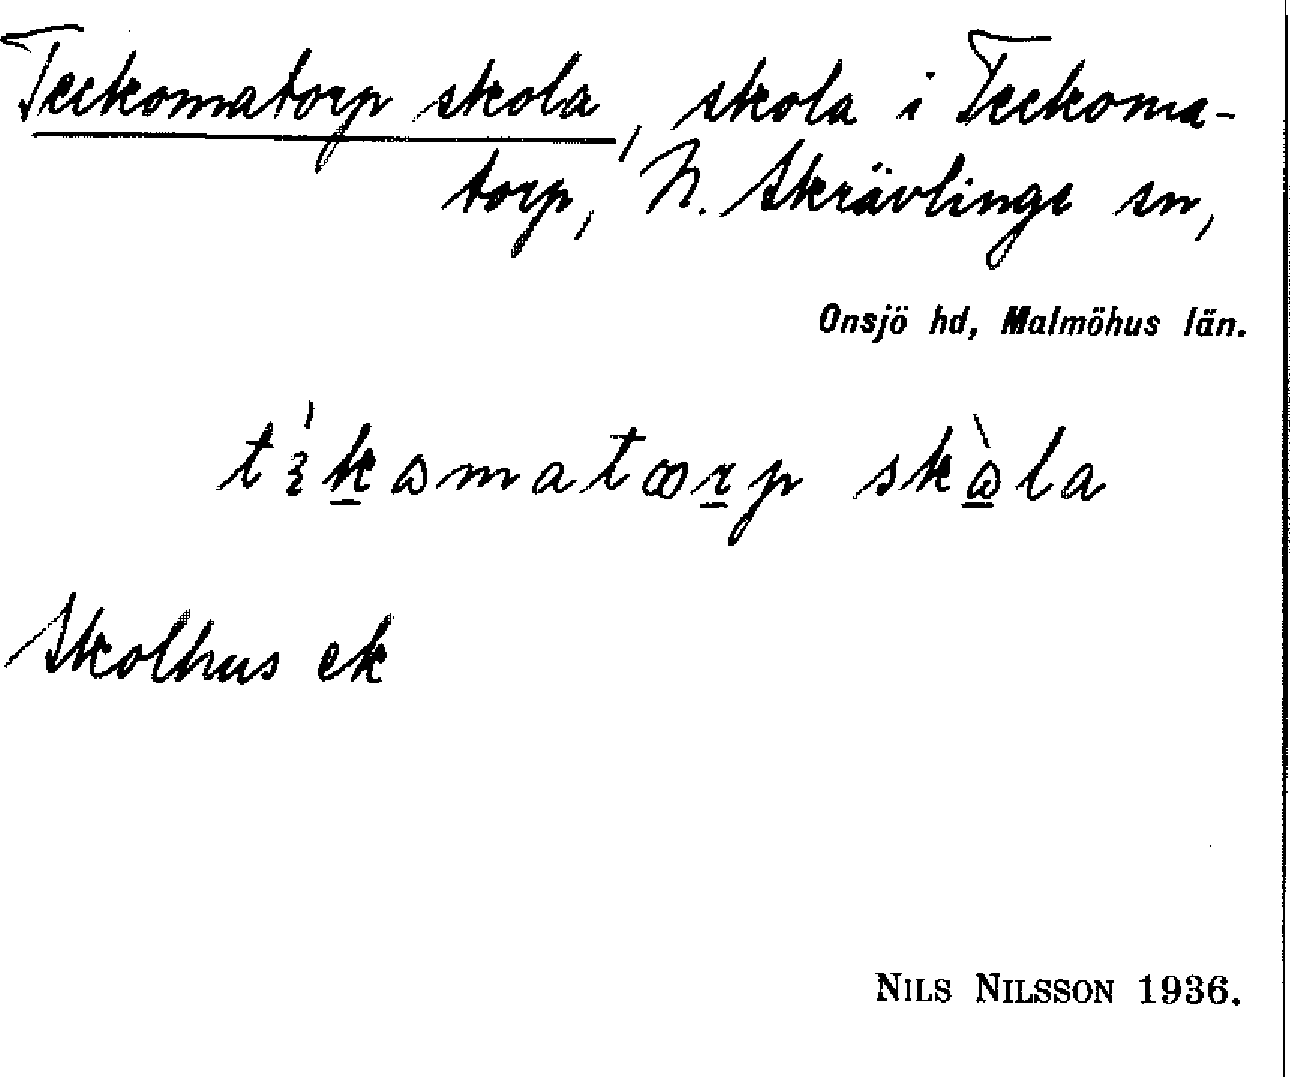 Teckomatorp skola, skola i Teckoma-
torp, N. Skrävlinge sn,
Onsjö hd, Malmöhus län.
skola
Skolhus ek
NILS NILSSON 1936.